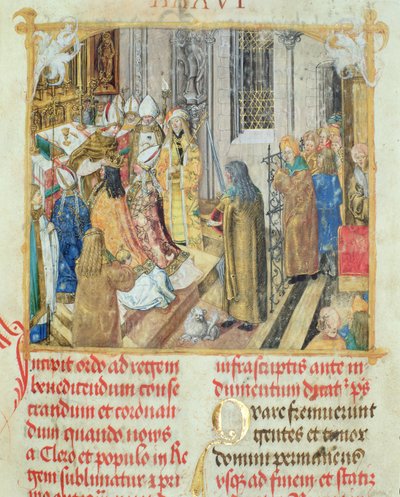 Incipit ordo ad regem
benedicendum conse
crandum et coronan
dum quando novus
a Clero et populo in Re
gem sublimatur et pri
infrascriptis ante in
dumentum dicatr ps
Quare fremuerunt
gentes et timor
domini permanens
usq ad finem et